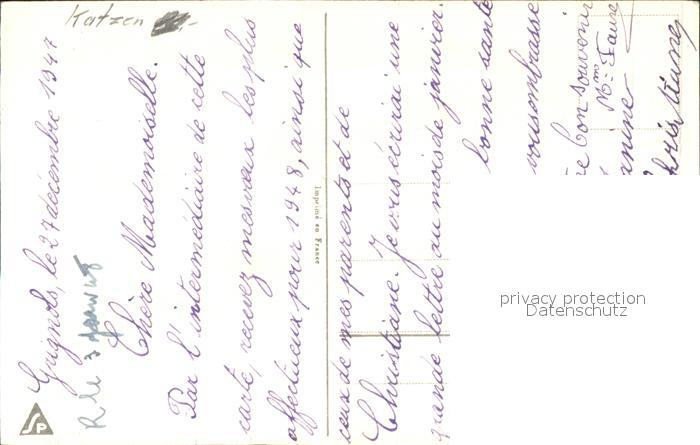 Katzen
Grignols, le 27 décembre 1947
R le 3 janvier
Chère Mademoiselle.
Par l'intermédiaire de cette
carte, recevez mes vœux les plus
affectueux pour 1948, ainsi que
Imprimé en France
ceux de mes parents et de
Christiane. Je vous écrirai une
grande lettre au mois de janvier.
bonne santé
vous embrasse
bon souvenir
Faure
anine
SP
privacy protection
Datenschutz